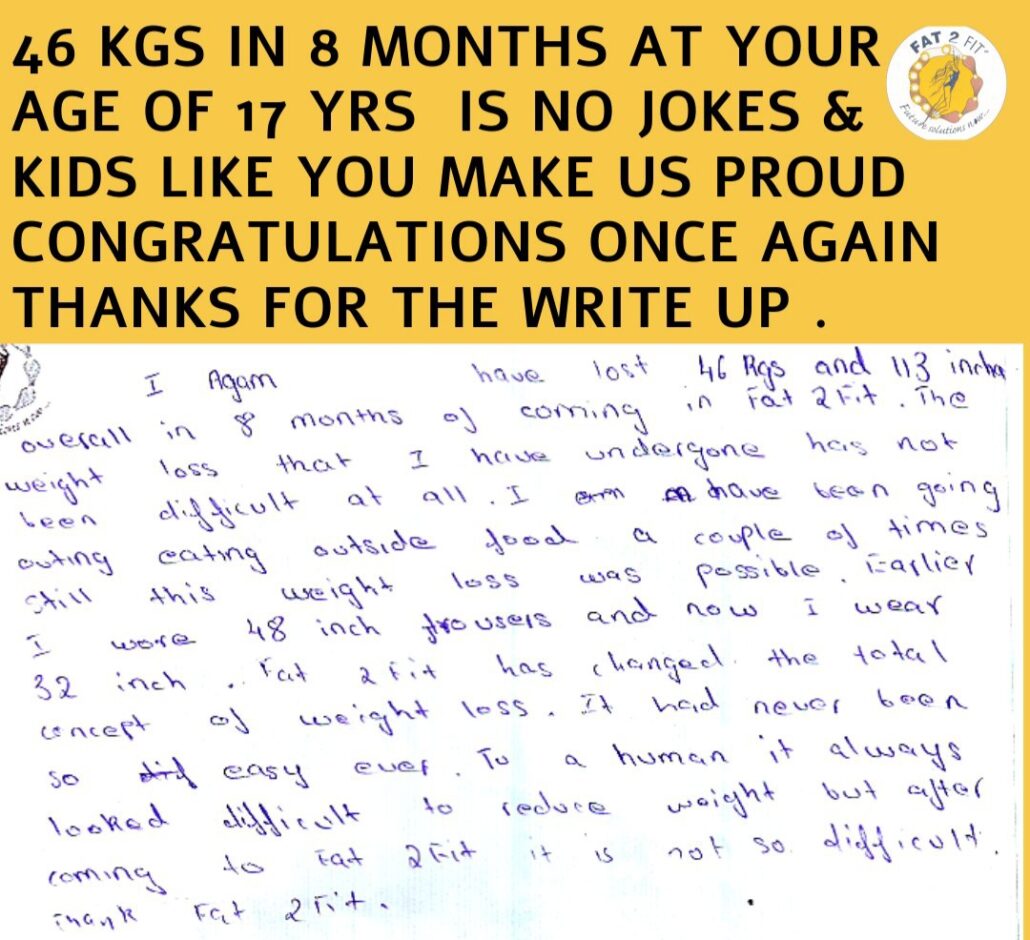 46 KGS IN 8 MONTHS AT YOUR
AGE OF 17 YRS IS NO JOKES &
KIDS LIKE YOU MAKE US PROUD
CONGRATULATIONS ONCE AGAIN
THANKS FOR THE WRITE UP .
FAT 2 FIT
Future solutions now...
I Agam have lost 46 Kgs and 113 inches
overall in 8 months of coming in Fat 2 Fit. The
weight loss that I have undergone has not
been difficult at all. I have been going
outing eating outside food a couple of times
still this weight loss was possible. Earlier
I wore 48 inch trousers and now I wear
32 inch. Fat 2 Fit has changed the total
concept of weight loss. It had never been
so easy ever. To a human it always
looked difficult to reduce weight but after
coming to Fat 2 Fit it is not so difficult.
Thank Fat 2 Fit.